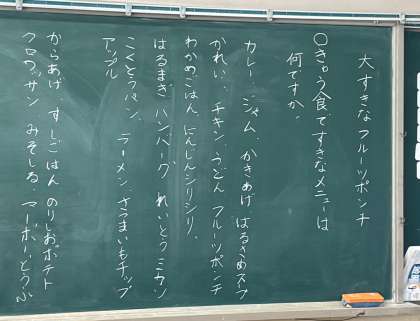 大すきなフルーツポンチ
〇きゅう食ですきなメニューは
何ですか。
カレー、ジャム、かきあげ はるさめスプ
かれい、チキン、うどん フルーツポンチ
わかめごはん、にんじんシリシリ、
はるまき ハンバーグ れいとうミカン
こくとうパン、ラーメン、さつまいもチップ
アップル
からあげ すしごはん のりしおポテト
クロワッサン みそしる、マーボーどうふ